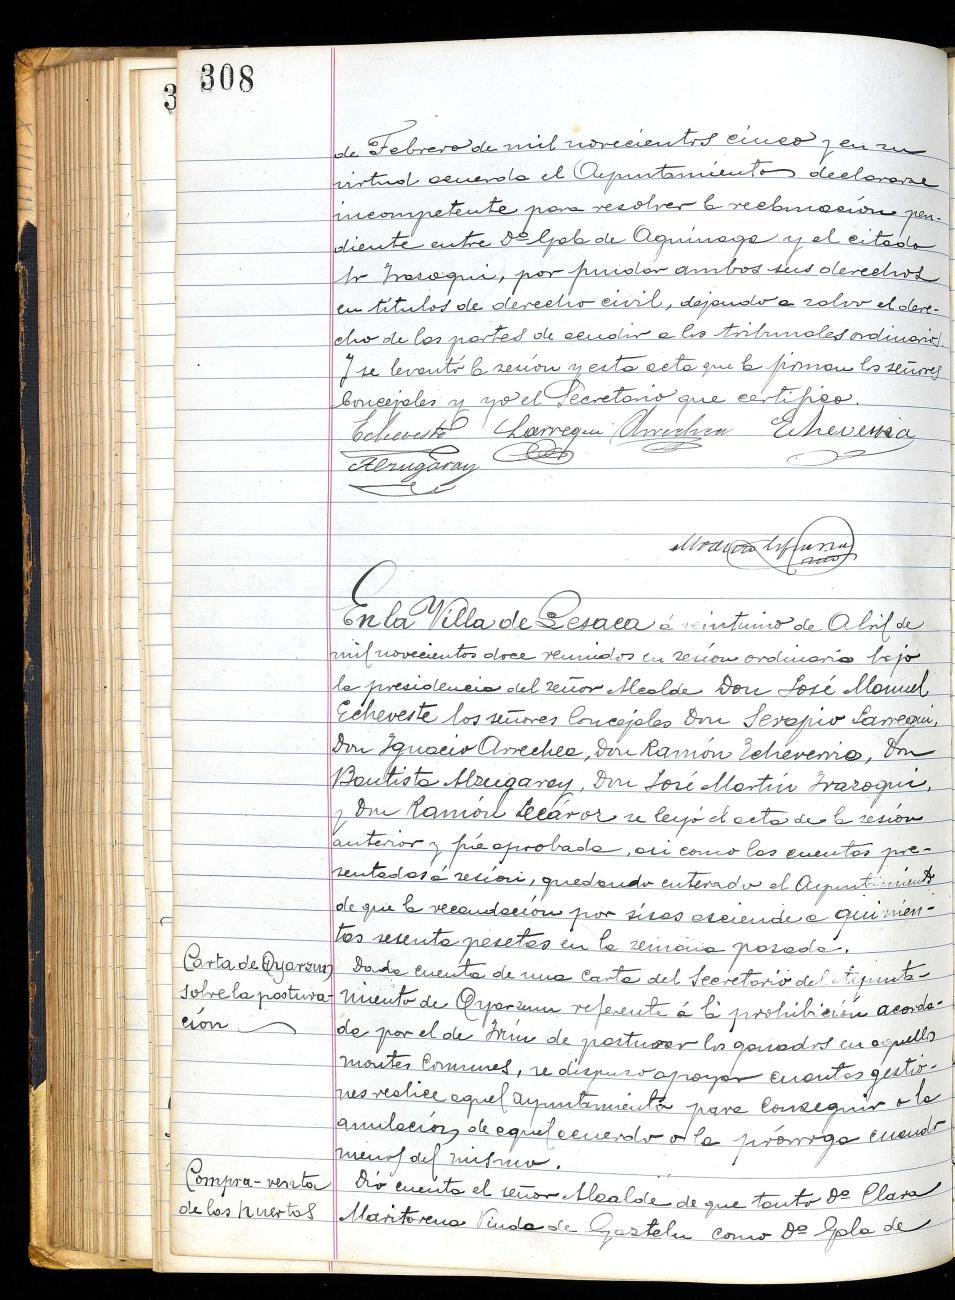 308
de Febrero de mil novecientos cinco y en su
virtud acuerda el Ayuntamiento declararse
incompetente para resolver la reclamación pen-
diente entre Dª Gala de Aguinaga y el citado
Sr Irazoqui, por fundar ambos sus derechos
en títulos de derecho civil, dejando a salvo el dere-
cho de las partes de acudir a los tribunales ordinarios.
Y se levantó la sesión y esta acta que la firman los señores
Concejales y yo el Secretario que certifico.
Echeveste Larregui Arrechea Echeverria
Alzugaray
En la Villa de Lesaca á veintiuno de Abril de
mil novecientos doce reunidos en sesión ordinaria bajo
la presidencia del señor Alcalde Don José Manuel
Echeveste los señores Concejales Don Serapio Larregui,
Don Ignacio Arrechea, Don Ramón Echeverria, Don
Bautista Alzugaray, Don José Martín Irazoqui,
y Don Ramón Lecároz se leyó el acta de la sesión
anterior y fué aprobada, asi como las cuentas pre-
sentadas á sesión, quedando enterado el Ayuntamiento
de que la recaudación por sisas asciende a quinien-
tas sesenta pesetas en la semana pasada.
Carta de Oyarzun
sobre la pastura-
ción
Dada cuenta de una carta del Secretario del Ayunta-
miento de Oyarzun referente á la prohibición acorda-
da por el de Irún de pasturar los ganados en aquellos
montes comunes, se dispuso apoyar cuantas gestio-
nes realice aquel ayuntamiento para conseguir o la
anulación de aquel acuerdo o la prórroga cuando
menos del mismo.
Compra-venta
de las huertas
Dió cuenta el señor Alcalde de que tanto Dª Clara
Maritorena Viuda de Gaztelu como Dª Gala de